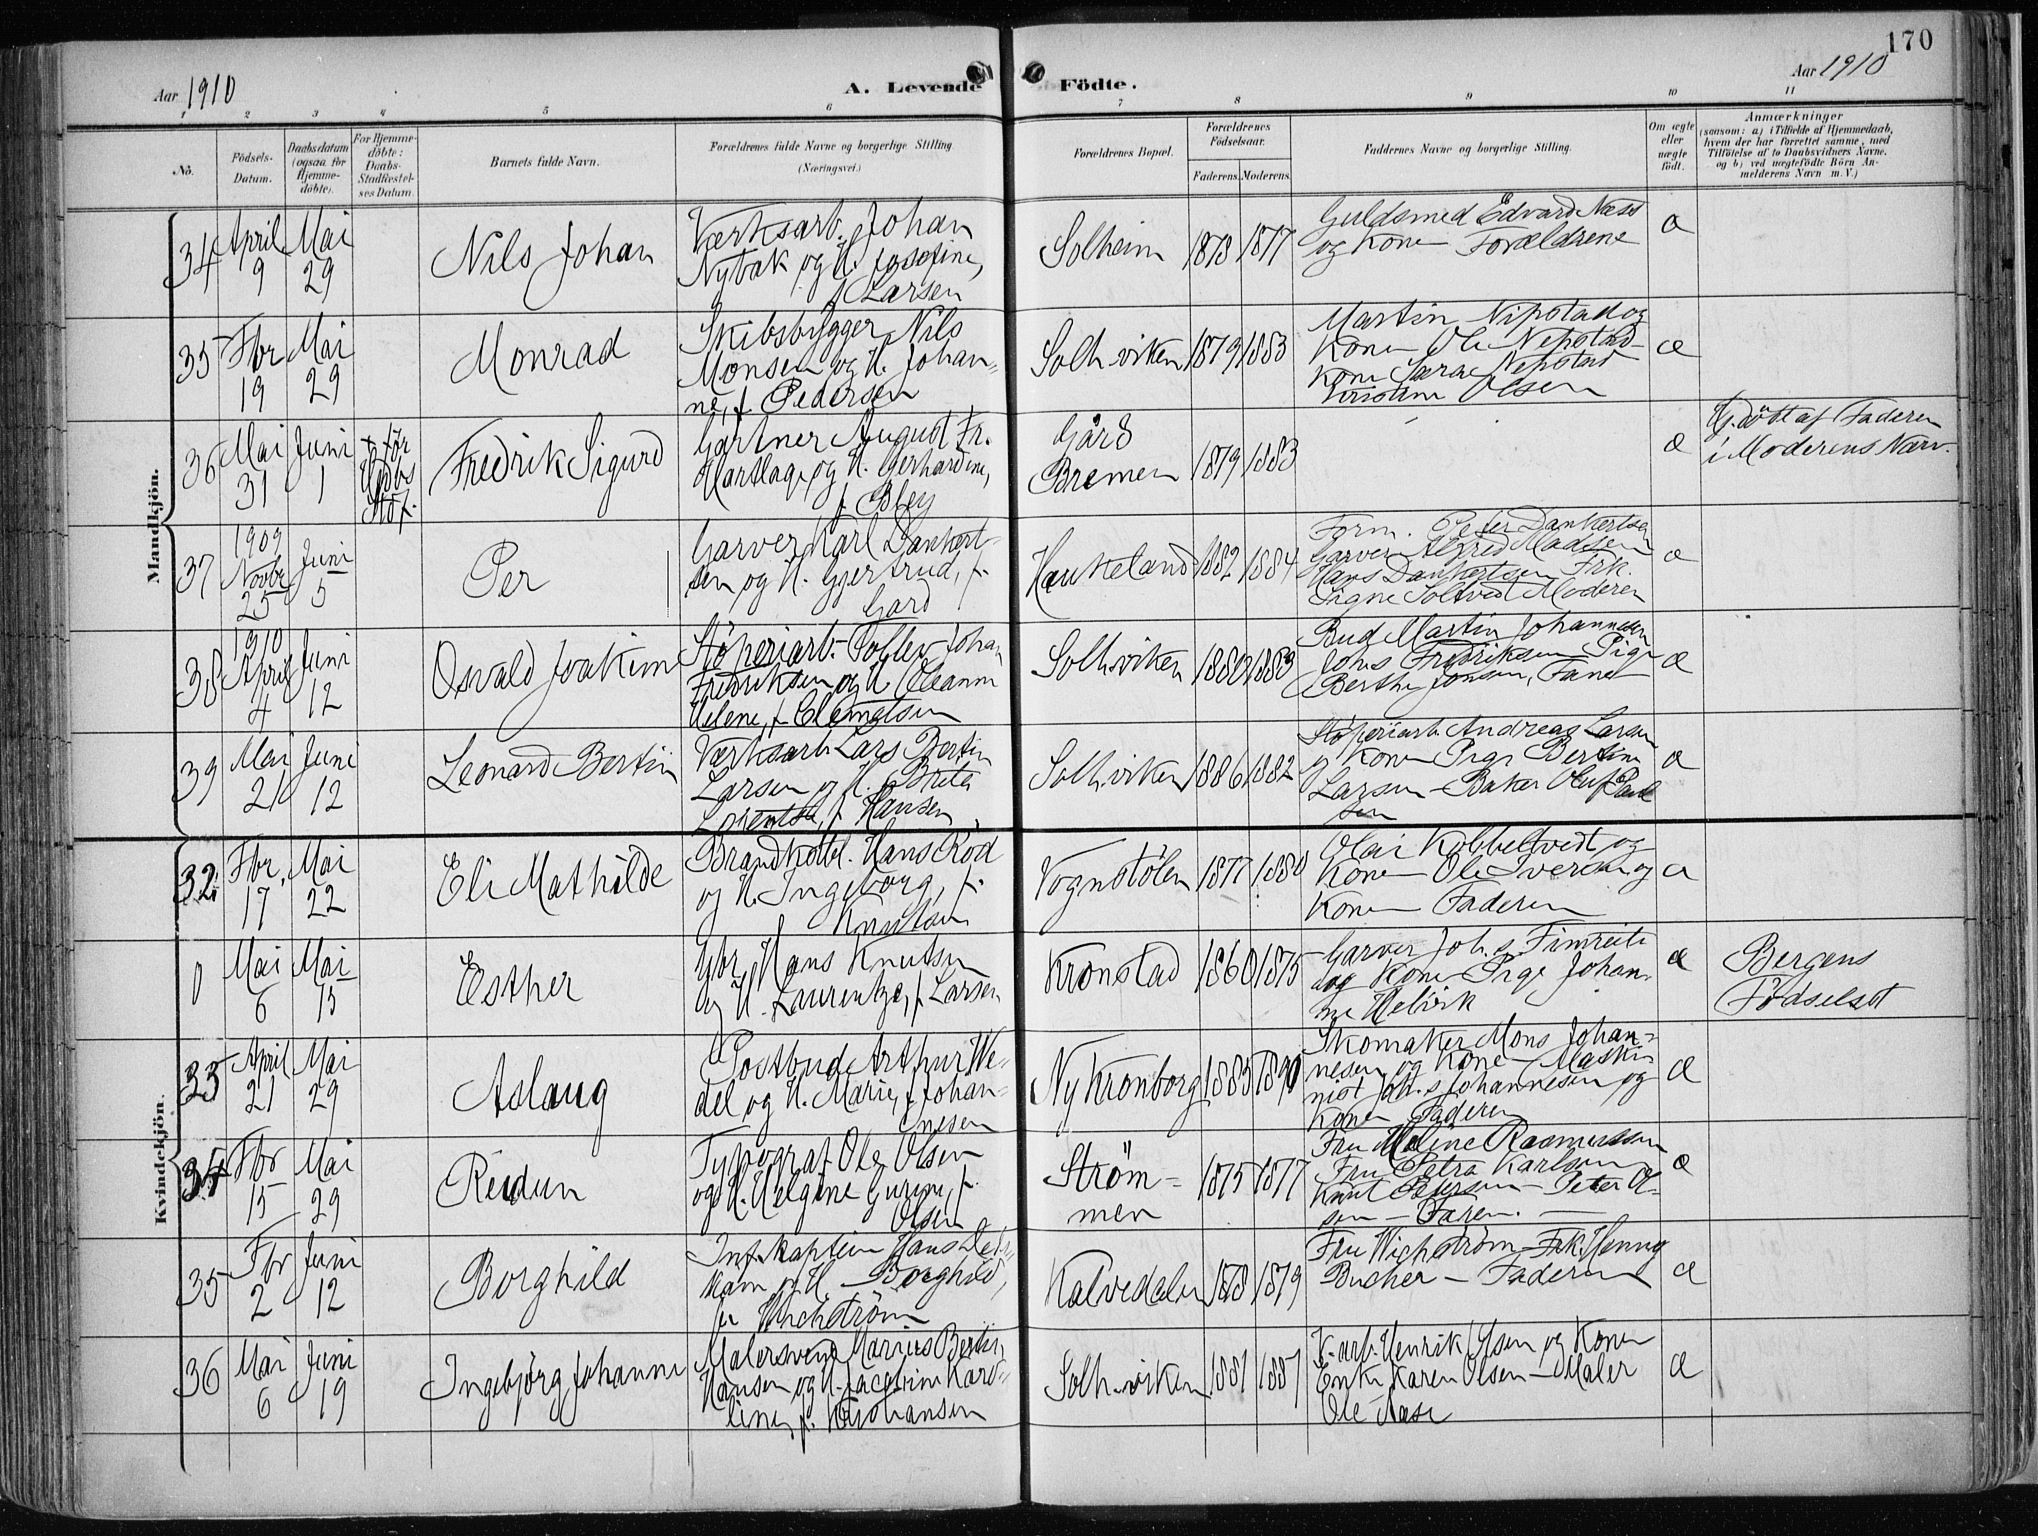 170
Aar 1910
A. Levende Födte.
Aar 1910
1 2 3 4 5 6 7 8 9 10 11
No.
Födsels-Datum.
Daabsdatum (ogsaa for Hjemme-döbte).
For Hjemme-döbte: Daabs-Stadfæstel-ses Datum.
Barnets fulde Navn.
Forældrenes fulde Navne og borgerlige Stilling.
(Næringsvei.)
Forældrenes Bopæl.
Forældrenes Födselsaar.
Faderens. Moderens.
Faddernes Navne og borgerlige Stilling.
Om ægte eller uægte födt.
Anmærkninger
(saasom: a) i Tilfælde af Hjemmedaab,
hvem der har forrettet samme, med
Tilföielse af to Daabsvidners Navne.
og b) ved uægtefödte Börn An-
melderens Navn m. V.)
Mandkjön.
34 April 9 Mai 29 Nils Johan
Værksarb. Johan
Nybak og H. Josefine,
f. Larsen
Solheim 1878 1877
Guldsmed Edvard Næss
og Kone Forældrene
æ
35 Fbr 19 Mai 29 Monrad
Skibsbygger Nils
Monsen og H. Johan=
ne, f. Pedersen
Solh.viken 1879 1883
Martin Nipstad og
Kone Ole Nepstad
Kone Sara Nepstad
Kristine Olsen
æ
36 Mai 31 Juni 1 Fredrik Sigurd
† før
Gartner August Fr.
Hartlage og H. Gerhardine,
f. Bley
Gård
Bremen 1879 1883
æ
Hj.døbt af Faderen
i Moderens Nærv.
37 1909 Novbr 25 Juni 5 Per
Garver Karl Dankert-
sen og H. Gjertrud, f.
Gard
Haukeland 1882 1884
Form. Peter Dankertsen
Garver Alfred Madsen
Hans Dankertsen Frk.
Signe Soltvedt Moderen
æ
38 1910 April 4 Juni 12 Osvald Joakim
Støperiarb. Johan
Fredriksen og H. Oleanna
Helene, f. Clemetsen
Solh.viken 1880 1883
Bud Martin Johannesen
Johs Fredriksen Pige
Berthe Jonsen, Faner
æ
39 Mai 21 Juni 12 Leonard Bertin
Værksarb. Lars Bertin
Larsen og H. Brita
Lorentse, f. Hansen
Solh.viken 1886 1882
Støperiarb. Andreas Larsen
og Kone Pige Bertine
Larsen - Baker Oluf Paul
sen
æ
Kvindekjön.
32 Fbr. 17 Mai 22 Eli Mathilde
Brandkstbl. Hans Rød
og H. Ingeborg, f.
Knutsen
Vognstølen 1877 1880
Olai Kobbeltvedt og
Kone Ole Iversen og
Kone Faderen
æ
0 Mai 6 Mai 15 Esther
Gbr. Hans Knutsen
og H. Laurentze, f. Larsen
Kronstad 1860 1875
Garver Joh.s Fimreite
og Kone Pige Johan-
ne
æ
Bergens
Fødselsst
33 April 21 Mai 29 Aslaug
Postbud Arthur We-
del og H. Marie, f. Johan-
nesen
Ny Kronborg 1885 1890
Skomaker Mons Johan=
nesen og Kone Maski-
nist Joh.s Johannesen og
Kone Faderen
æ
34 Fbr 15 Mai 29 Reidun
Typograf Ole Olsen
og H. Helgine Gurine, f.
Olsen
Strøm-
men 1875 1877
Fru Maline Rasmussen
Fru Petra Karlsen
Knut Petersen - Peter Ol-
sen - Faren.
æ
35 Fbr 2 Juni 12 Borghild
Inf.kaptein Hans
og H. Borghild,
f. Wichstrøm
Kalvedalen 1878 1879
Fru Wichstrøm - Frk. Henny
Bucher - Faderen
æ
36 Mai 6 Juni 19 Ingebjørg Johanne
Malersvend Marius Bertin
Hansen og H. Jacobine Karo-
line, f. Johansen
Solh.viken 1881 1887
V.arb. Henrik Olsen og Kone
Enke Karen Olsen - Maler
Ole Næss
æ